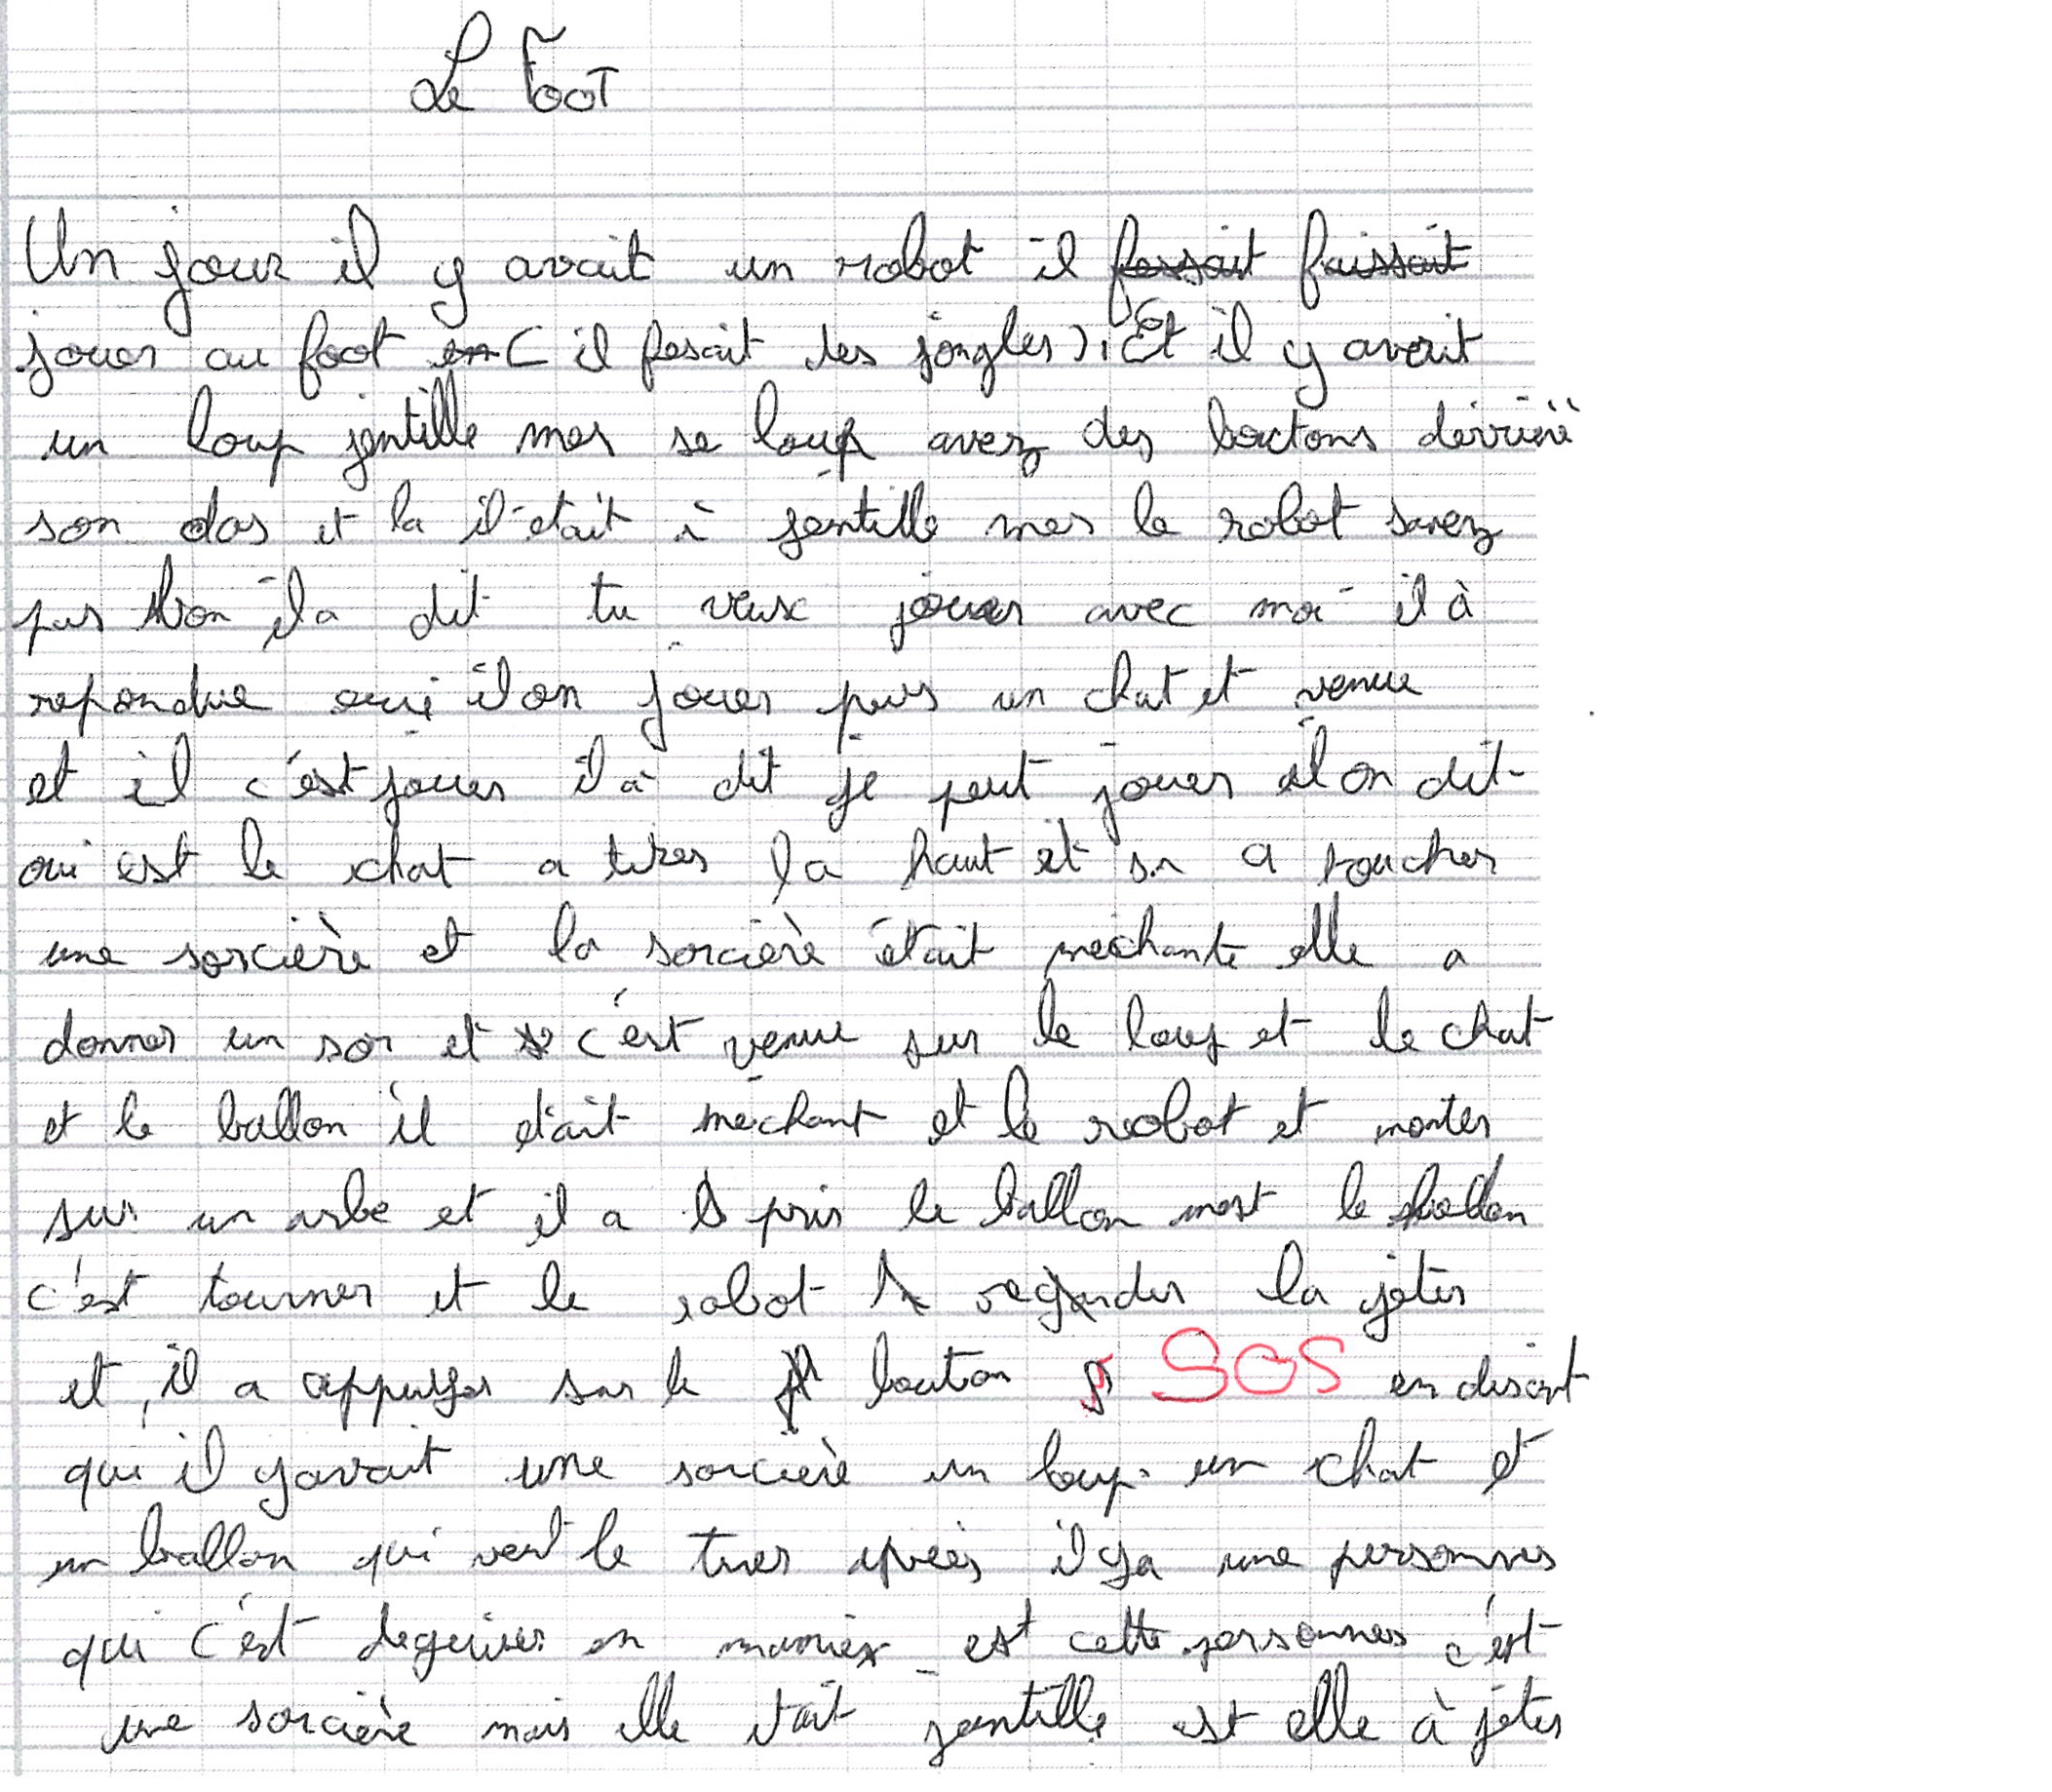 Le Foot
Un jour il y avait un robot il fessait faissait
jouer au foot en ( il fesait des jongles ). Et il y avait
un loup jentille mes se loup avez des boutons dèrrière
son dos et la il était à jentille mes le robot savez
pas bon il a dit tu veux jouer avec moi il à
repondue oui il on jouer puis un chat et venue
et il c'est jouer il à dit je peut jouer il on dit
oui est le chat a tirer la haut et sa a toucher
une sorcière et la sorcière était mechante elle a
donner un sor et se c'est venue sur le loup et le chat
et le ballon il était méchant et le robot et monter
sur un arbe et il a pris le ballon mest le ballon
c'est tourner et le robot regarder la jeter
et il a appuyer sur le bouton SOS en disant
qui il yavait une sorcière un loup un chat et
un ballon qui veut le tuer après il ya une personnes
qui c'est deguiser en mamiex est cette personnes c'est
une sorcière mais elle était jentille est elle à jeter